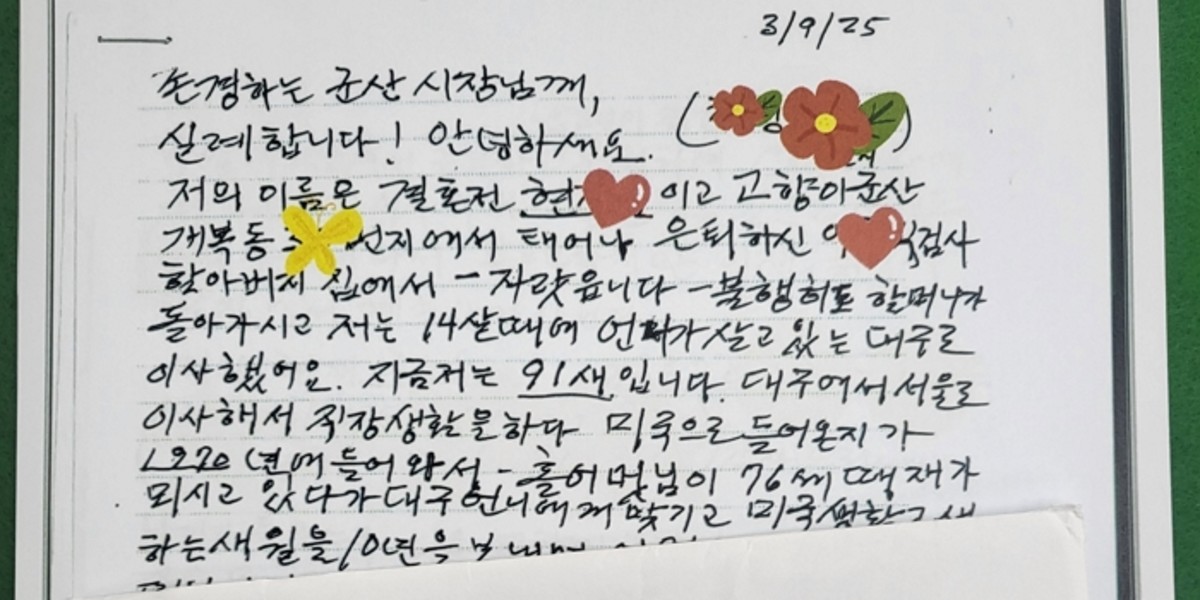 3/9/25
존경하는 군산 시장님께,
실례합니다! 안녕하세요. ( )
저의 이름은 결혼전 현 이고 고향이군산
개복동 번지에서 태어나 은퇴하신 검사
할아버지 집에서 - 자랏읍니다 - 불행히도 할머니가
돌아가시고 저는 14살때에 언니가 살고 있는 대구로
이사했어요. 지금저는 91생입니다. 대구에서 서울로
이사해서 직장생활을하다 미국으로 들어온지가
1970년에 들어와서 - 홀어먼님이 76세때 재가
뫼시고 있다가 대구언니에게 맞기고 미국
하는새월을 10년